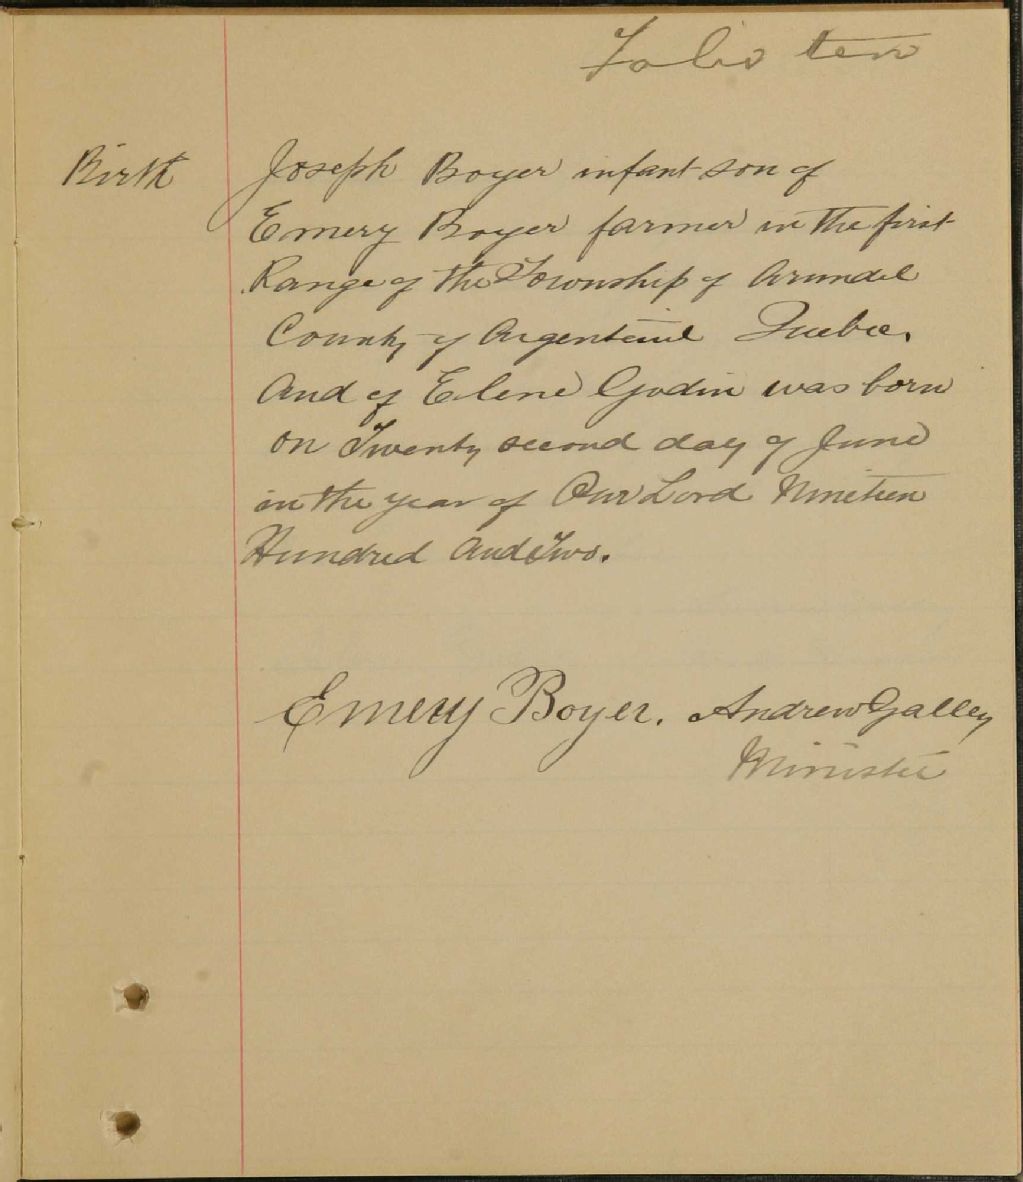 Folio ten
Birth
Joseph Boyer infant son of
Emery Boyer farmer in the first
Range of the Township of Arundel
County of Argenteuil Quebec.
And of Elene Godin was born
on Twenty second day of June
in the year of Our Lord Nineteen
Hundred and Two.
Emery Boyer. Andrew Galley
Minister